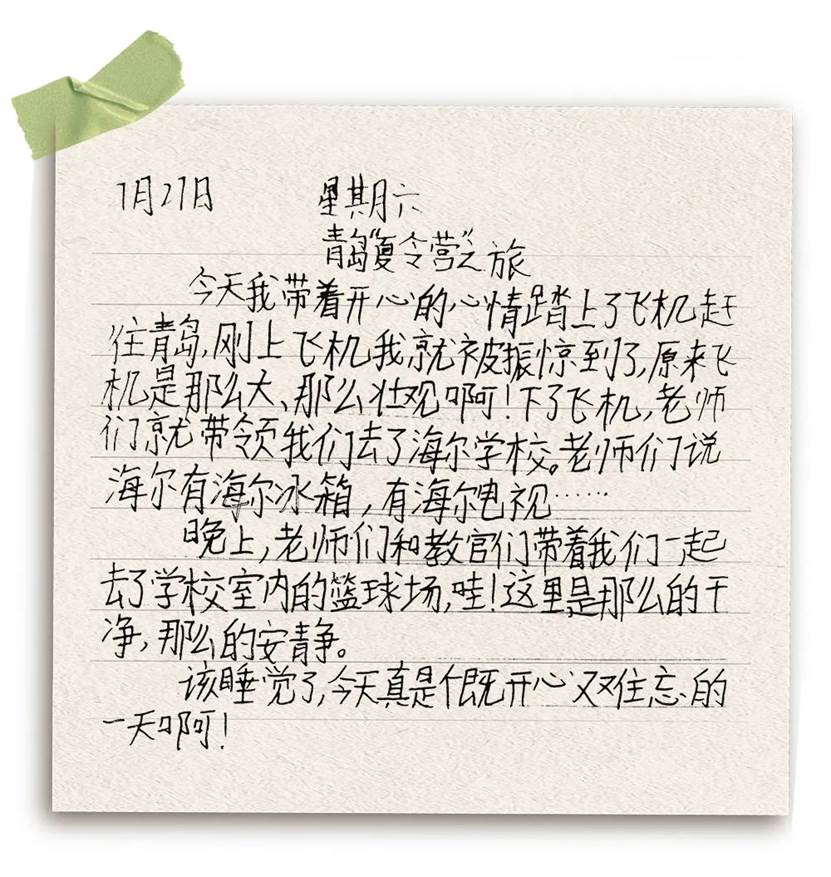 7月27日 星期六
青岛"夏令营"之旅
今天我带着开心的心情踏上了飞机赶
往青岛,刚上飞机我就被振惊到了,原来飞
机是那么大、那么壮观啊!下了飞机,老师
们就带领我们去了海尔学校。老师们说
海尔有海尔冰箱,有海尔电视……
晚上,老师们和教官们带着我们一起
去了学校室内的篮球场,哇!这里是那么的干
净,那么的安静。
该睡觉了,今天真是个既开心又难忘的
一天啊!